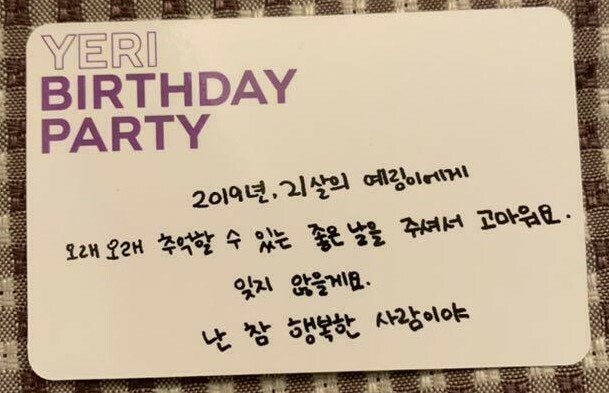 YERI
BIRTHDAY
PARTY
2019년, 21살의 예림이에게
오래오래 추억할 수 있는 좋은 날을 주셔서 고마워요.
잊지 않을게요.
난 참 행복한 사람이야